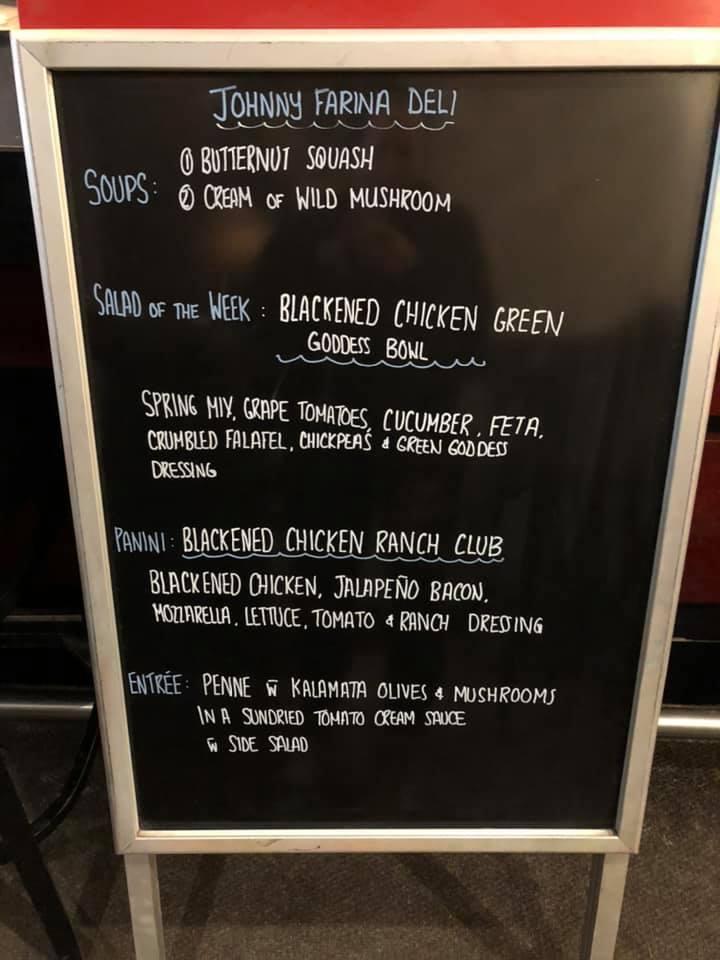 JOHNNY FARINA DELI
SOUPS: ① BUTTERNUT SQUASH
② CREAM OF WILD MUSHROOM
SALAD OF THE WEEK : BLACKENED CHICKEN GREEN
GODDESS BOWL
SPRING MIX, GRAPE TOMATOES, CUCUMBER, FETA,
CRUMBLED FALAFEL, CHICKPEAS & GREEN GODDESS
DRESSING
PANINI: BLACKENED CHICKEN RANCH CLUB
BLACKENED CHICKEN, JALAPEÑO BACON,
MOZZARELLA, LETTUCE, TOMATO & RANCH DRESSING
ENTRÉE: PENNE W̅ KALAMATA OLIVES & MUSHROOMS
IN A SUNDRIED TOMATO CREAM SAUCE
W̅ SIDE SALAD